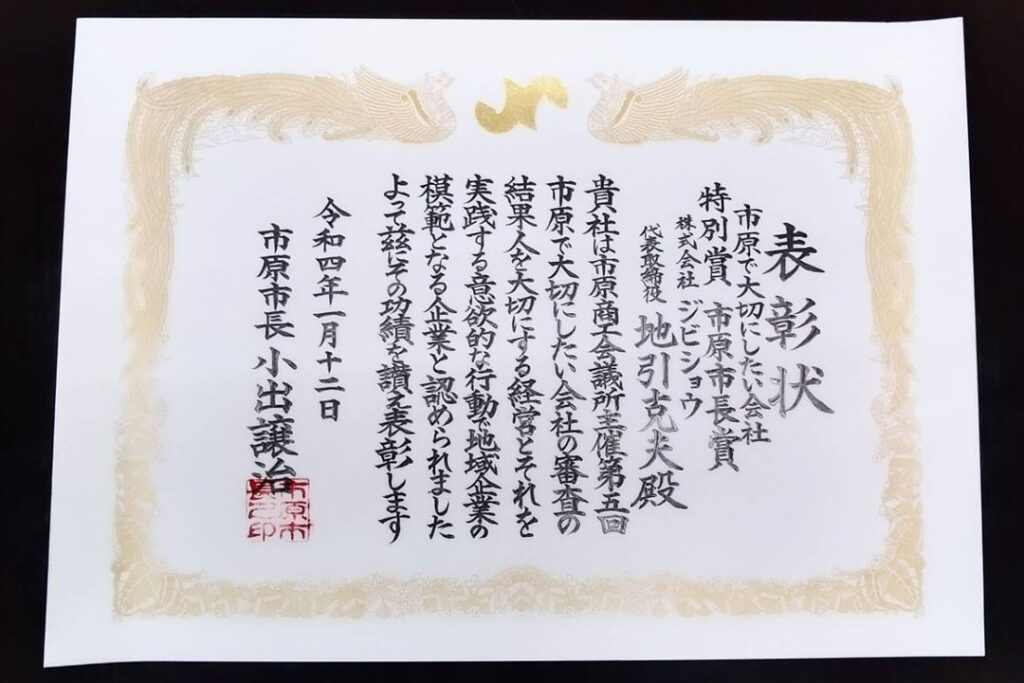 表彰状
市原で大切にしたい会社
特別賞 市原市長賞
株式会社 ジビショウ
代表取締役 地引克夫殿
貴社は市原商工会議所主催第五回
市原で大切にしたい会社の審査の
結果人を大切にする経営とそれを
実践する意欲的な行動で地域企業の
模範となる企業と認められました
よって茲にその功績を讃え表彰します
令和四年一月十二日
市原市長 小出譲治
市原市
長之印